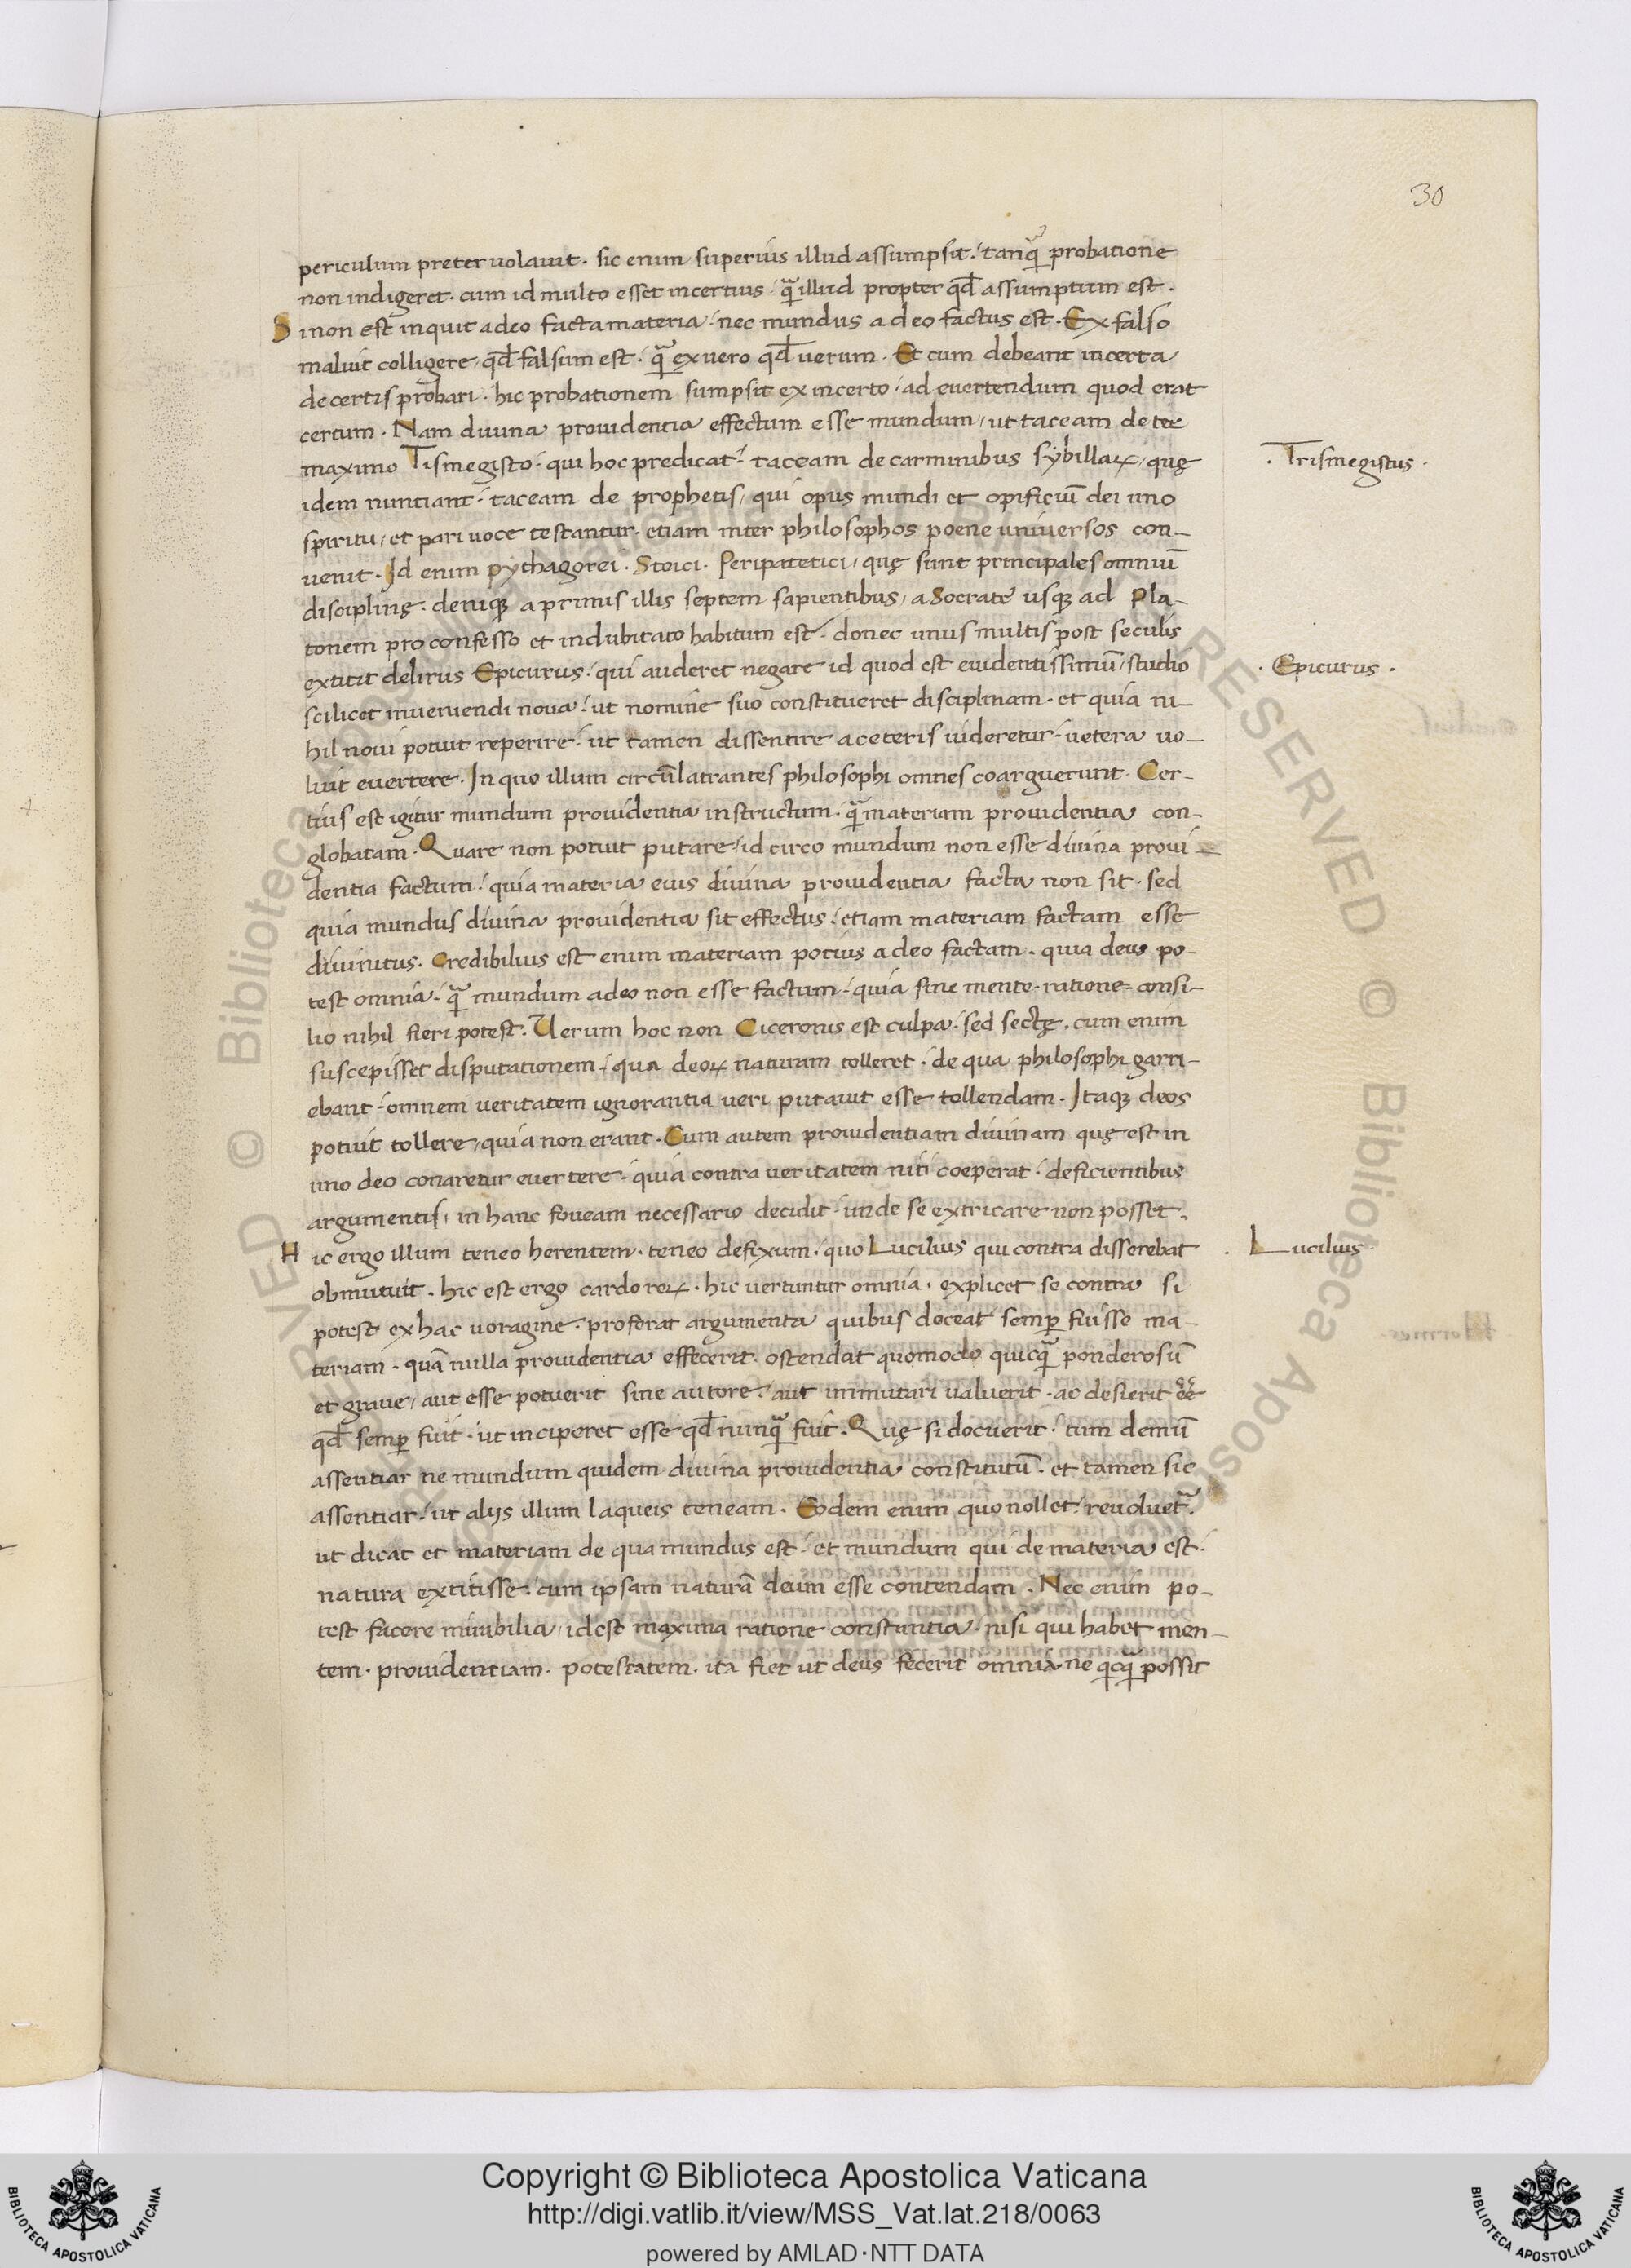 30
periculum preteruolauit. sic enim superius illud assumpsit. tanqȝ probatione
non indigeret. cum id multo esset incertius. qȝ illud propter qđ assumptum est.
Sinon est inquit adeo facta materia. nec mundus a deo factus est. Ex falso
maluit colligere, qđ falsum est. qȝ ex uero qđ uerum. Et cum debeant incerta
de certis probari. hic probationem sumpsit ex incerto. ad euertendum quod erat
certum. Nam diuina prouidentia effectum esse mundum, ut taceam de ter
maximo Tismegisto. qui hoc predicat. taceam de carminibus sybillaꝝ, quę
idem nuntiant. taceam de prophetis, qui opus mundi et opificiū dei uno
spiritu, et pari uoce testantur. etiam inter philosophos poene uniuersos con-
uenit. Id enim pythagorei. Stoici. Peripatetici, quę sunt principales omniū
disciplinę. deniqȝ a primis illis septem sapientibus, a Socrate usqȝ ad Pla-
tonem pro confesso et indubitato habitum est. donec unus multis post seculis
extitit delirus Epicurus. qui auderet negare id quod est euidentissimū, studio
scilicet inueniendi noua. ut nomine suo constitueret disciplinam. et quia ni-
hil noui potuit reperire. ut tamen dissentire a ceteris uideretur. uetera uo-
luit euertere. In quo illum circūlatrantes philosophi omnes coarguerunt. Cer-
tius est igitur mundum prouidentia instructum. qȝ materiam prouidentia con-
globatam. Quare non potuit putare, id circo mundum non esse diuina proui-
dentia factum. quia materia eius diuina prouidentia facta non sit. sed
quia mundus diuina prouidentia sit effectus. etiam materiam factam esse
diuinitus. Credibilius est enim materiam potius a deo factam. quia deus po-
test omnia. qȝ mundum adeo non esse factum. quia sine mente. ratione. consi-
lio nihil fieri potest. Uerum hoc non Ciceronis est culpa. sed sectę. cum enim
suscepisset disputationem. qua deoꝝ naturam tolleret. de qua philosophi garri-
ebant. omnem ueritatem ignorantia ueri putauit esse tollendam. Itaqȝ deos
potuit tollere, quia non erant. Cum autem prouidentiam diuinam quę est in
uno deo conaretur euertere. quia contra ueritatem niti coeperat. deficientibus
argumentis, in hanc foueam necessario decidit. unde se extricare non posset.
Hic ergo illum teneo herentem. teneo defixum. quo Lucilius qui contra disserebat
obmutuit. hic est ergo cardo reꝝ. hic uertuntur omnia. explicet se contra si
potest ex hac uoragine. proferat argumenta quibus doceat semꝑ fuisse ma-
teriam. quā nulla prouidentia effecerit. ostendat quomodo quicqȝ ponderosū
et graue, aut esse potuerit sine autore. aut inmutari ualuerit. ac desierit ēē
qđ semꝑ fuit. ut inciperet esse qđ nunqȝ fuit. Quę si docuerit. tum demū
assentiar ne mundum quidem diuina prouidentia constitutū. et tamen sic
assentiar. ut alijs illum laqueis teneam. Eodem enim quo nollet. reuoluet̃.
ut dicat et materiam de qua mundus est. et mundum qui de materia est.
natura extitisse. cum ipsam naturā deum esse contendam. Nec enim po-
test facere mirabilia, id est maxima ratione constantia. nisi qui habet men-
tem. prouidentiam. potestatem. ita fiet ut deus fecerit omnia. ne qicqȝ possit
. Trismegistus .
. Epicurus .
. Lucilius
Copyright © Biblioteca Apostolica Vaticana
http://digi.vatlib.it/view/MSS_Vat.lat.218/0063
powered by AMLAD·NTT DATA
BIBLIOTECA APOSTOLICA VATICANA
BIBLIOTECA APOSTOLICA VATICANA